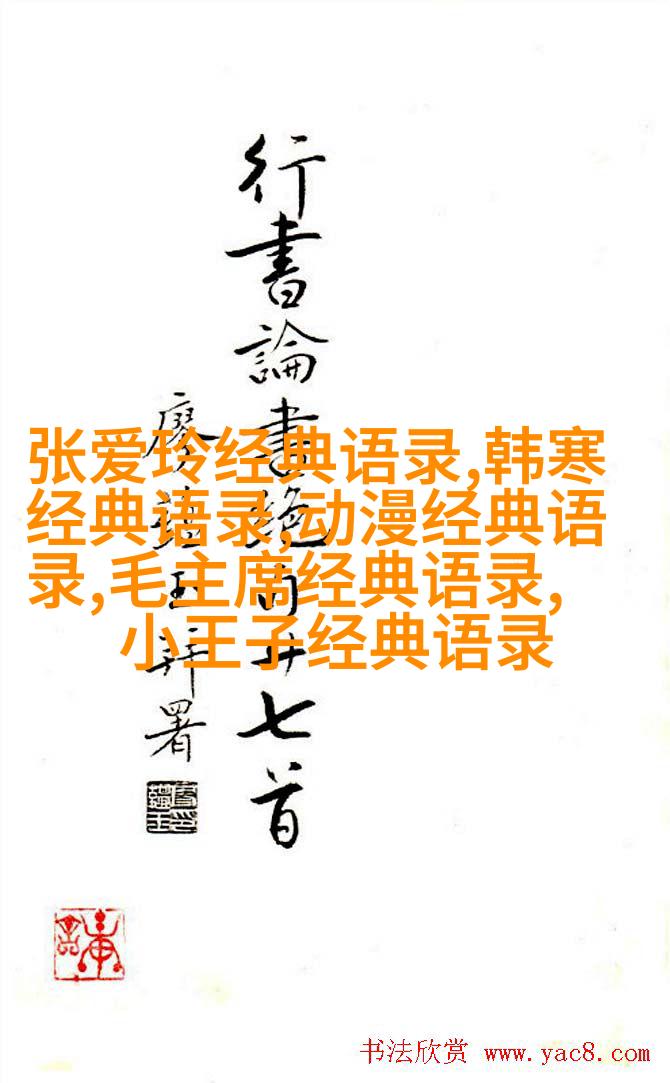 行書論書絕句廿七首
廖蘊玉拜署
张爱玲经典语录,韩寒
经典语录,动漫经典语
录,毛主席经典语录,
小王子经典语录
书法欣赏 www.yac8.com